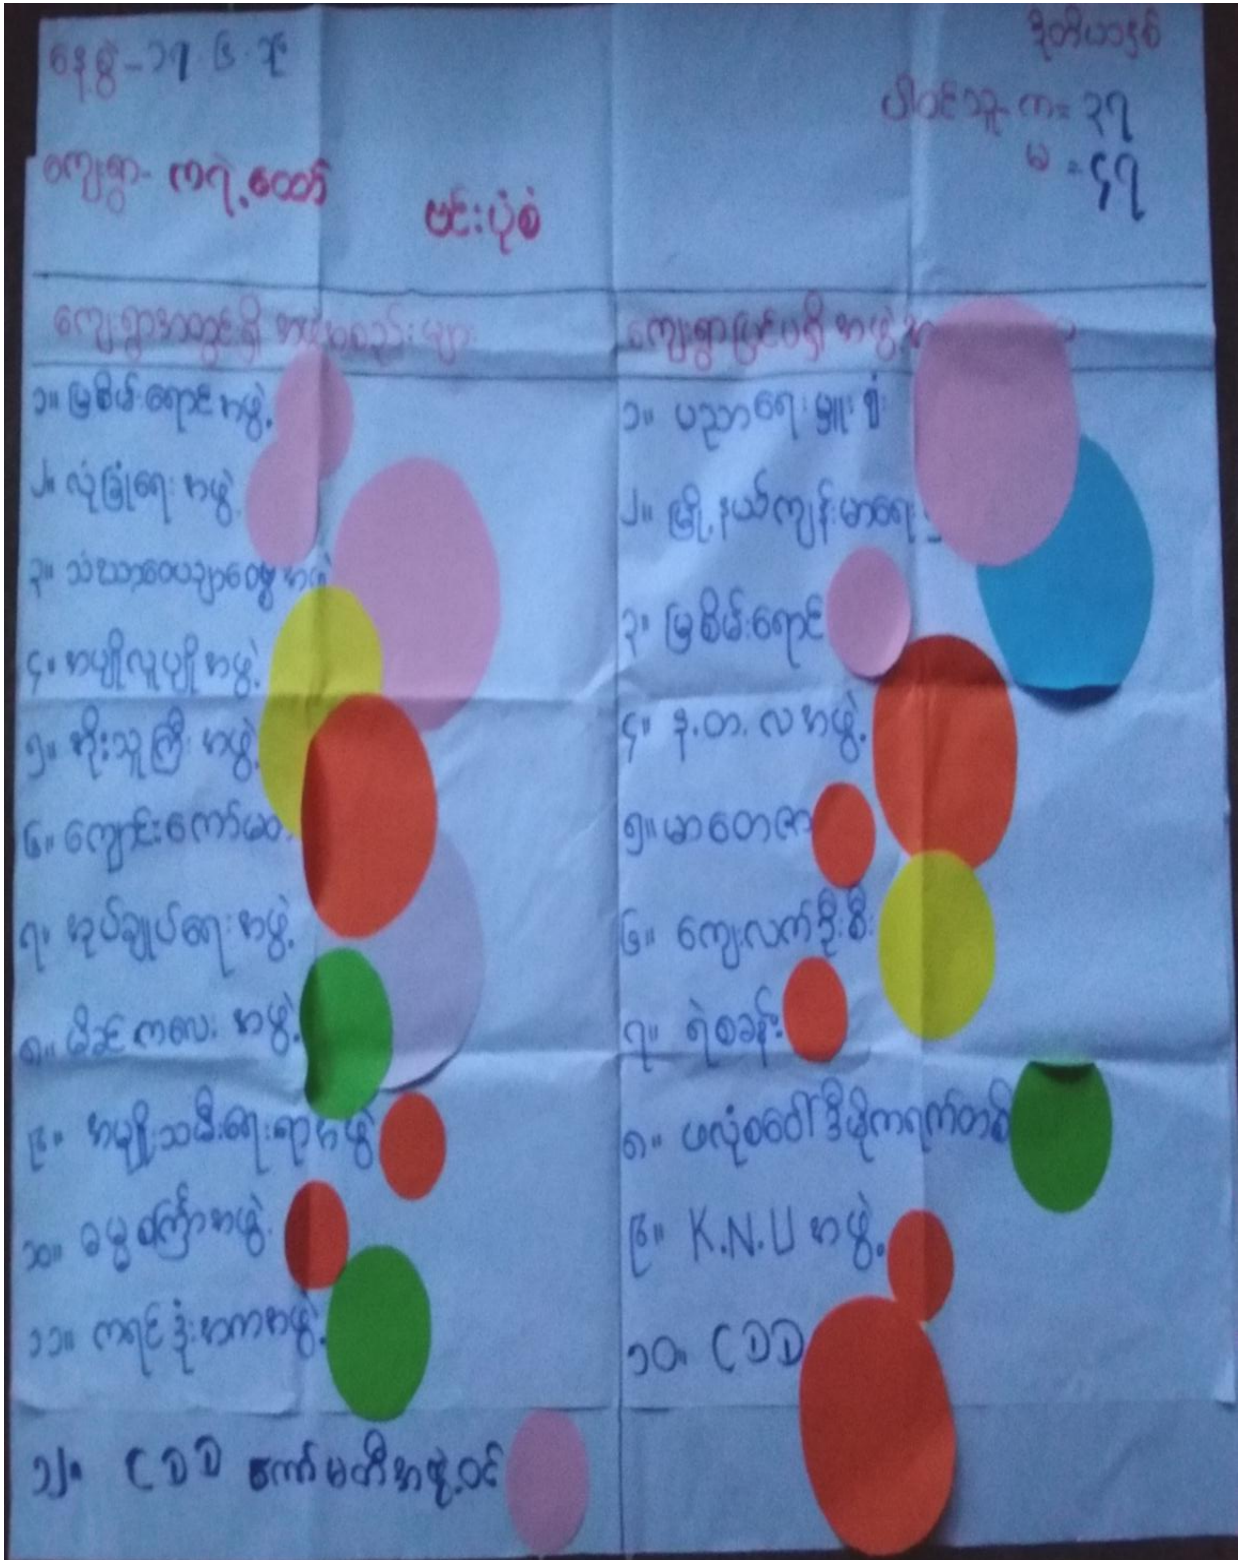 နေ့စွဲ-၁၇.၆.၁၆
ဒုတိယနှစ်
ပါဝင်သူ- က = ၃၇
မ = ၄၇
ကျေးရွာ- ကရဲ့ထော်
ဗင်းပုံစံ
ကျေးရွာအတွင်းရှိ အဖွဲ့အစည်းများ
၁။ မြစိမ်းရောင်အဖွဲ့
၂။ လုံခြုံရေးအဖွဲ့
၃။ သံဃာ့ဝေယျာဝစ္စအဖွဲ့
၄။ အပျိုလူပျိုအဖွဲ့
၅။ ကိုးသူကြီးအဖွဲ့
၆။ ကျောင်းကော်မတီ
၇။ အုပ်ချုပ်ရေးအဖွဲ့
၈။ မိခင်ကလေးအဖွဲ့
၉။ အမျိုးသမီးရေးရာအဖွဲ့
၁၀။ ဓမ္မစကြာအဖွဲ့
၁၁။ ကရင်ဒုံးအကအဖွဲ့
၁၂။ CDD ကော်မတီအဖွဲ့ဝင်
ကျေးရွာပြင်ပရှိ အဖွဲ့
၁။ ပညာရေးမှူးရုံး
၂။ မြို့နယ်ကျန်းမာရေး
၃။ မြစိမ်းရောင်
၄။ န.တ.လအဖွဲ့
၅။ မာတေဇာ
၆။ ကျေးလက်ဦးစီး
၇။ ရဲစခန်း
၈။ ဖလုံစဝေါ်ဒီမိုကရက်တစ်
၉။ K.N.U အဖွဲ့
၁၀။ CDD